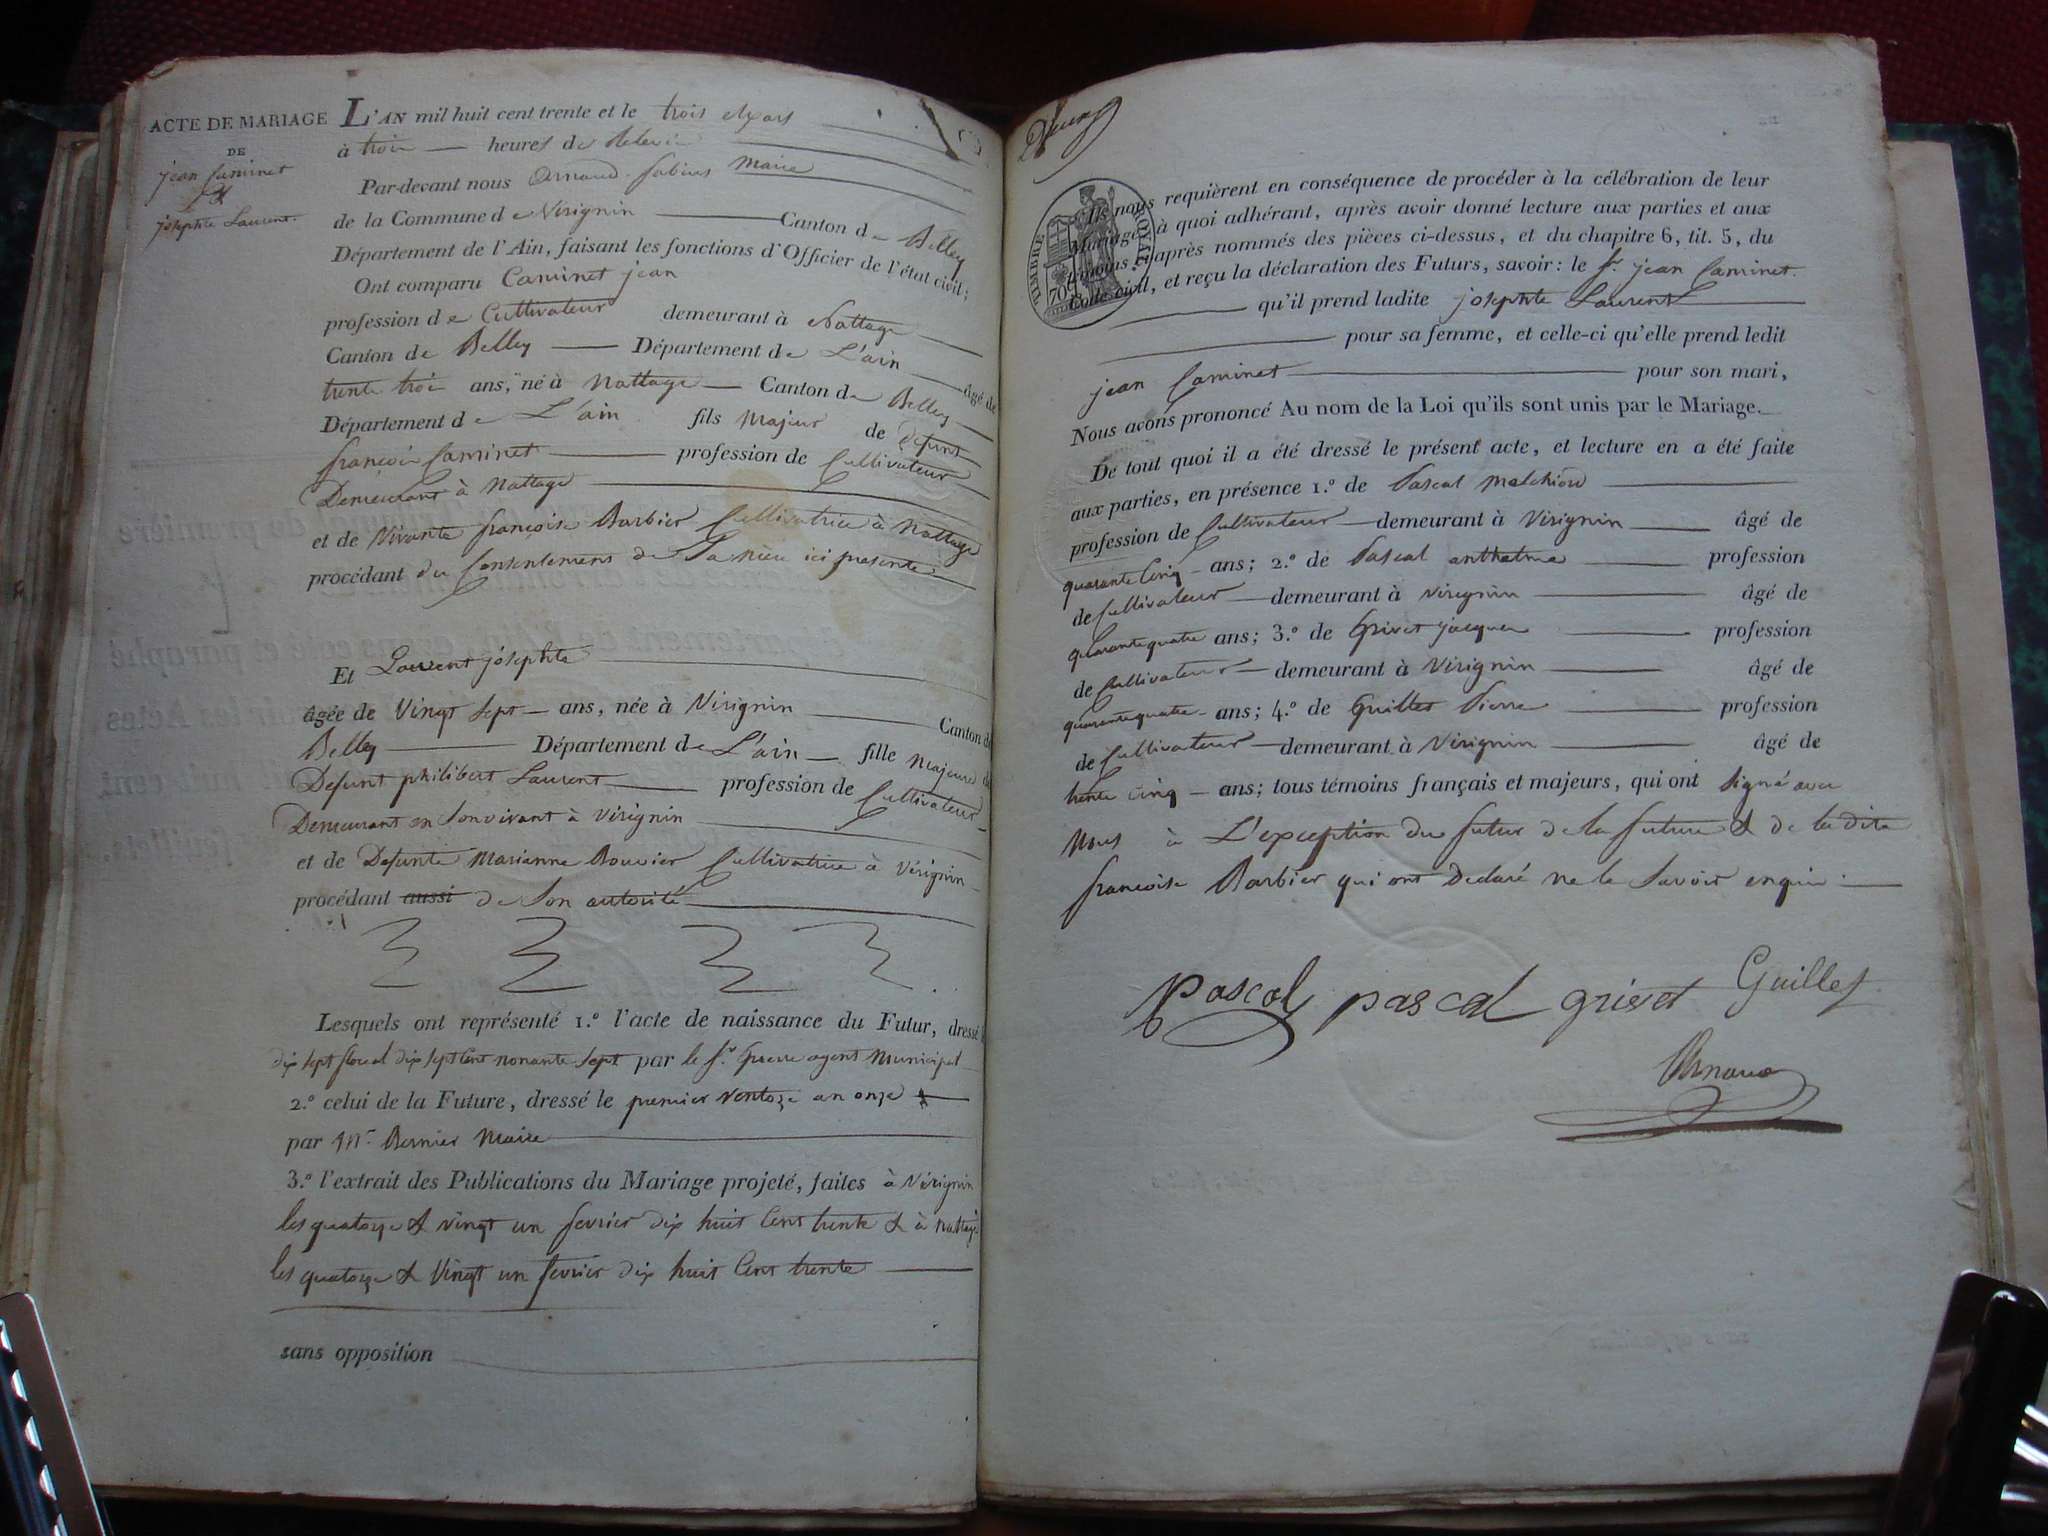 ACTE DE MARIAGE
DE
jean Caminet
&
josephte Laurent.
L'AN mil huit cent trente et le trois Mars
à trois heures de Relevée
Par-devant nous Arnaud Maire
de la Commune de Virignin Canton de Belley
Département de l'Ain, faisant les fonctions d'Officier de l'état civil;
Ont comparu Caminet jean
profession de Cultivateur demeurant à Nattage
Canton de Belley Département de L'ain âgé de
trente trois ans, né à Nattage Canton de Belley
Département de L'ain fils Majeur de Defunt
françois Caminet profession de Cultivateur
Demeurant à Nattage
et de Vivante françoise Barbier Cultivatrice à Nattage
procédant du Consentement de Sa mère ici presente
Et Laurent josephte
âgée de Vingt Sept ans, née à Virignin Canton de
Belley Département de L'ain fille Majeure de
Defunt philibert Laurent profession de Cultivateur
Demeurant en Son vivant à Virignin
et de Defunte Marianne Bouvier Cultivatrice à Virignin
procédant aussi de Son autorité
Lesquels ont représenté 1.º l'acte de naissance du Futur, dressé le
dix sept floreal dix sept Cent nonante Sept par le Sr. agent Municipal
2.º celui de la Future, dressé le premier Ventoze an onze
par Mr. Bernier Maire
3.º l'extrait des Publications du Mariage projeté, faites à Virignin
les quatorze & vingt un fevrier dix huit Cent trente & à Nattage
les quatorze & Vingt un fevrier dix huit Cent trente
sans opposition
TIMBRE ROYAL
70c
Ils nous requièrent en conséquence de procéder à la célébration de leur
Mariage, à quoi adhérant, après avoir donné lecture aux parties et aux
témoins ci-après nommés des pièces ci-dessus, et du chapitre 6, tit. 5, du
Code civil, et reçu la déclaration des Futurs, savoir: le Sr. jean Caminet.
qu'il prend ladite josephte Laurent
pour sa femme, et celle-ci qu'elle prend ledit
jean Caminet pour son mari,
Nous avons prononcé Au nom de la Loi qu'ils sont unis par le Mariage.
De tout quoi il a été dressé le présent acte, et lecture en a été faite
aux parties, en présence 1.º de Pascal Melchior
profession de Cultivateur demeurant à Virignin âgé de
quarante Cinq ans; 2.º de Pascal anthelme profession
de Cultivateur demeurant à Virignin âgé de
quarante quatre ans; 3.º de Grivet jacques profession
de Cultivateur demeurant à Virignin âgé de
quarante quatre ans; 4.º de Guillet Pierre profession
de Cultivateur demeurant à Virignin âgé de
trente Cinq ans; tous témoins français et majeurs, qui ont Signé avec
Nous à L'exception du futur de la future & de la dite
françoise Barbier qui ont Declaré ne le Savoir enquis
pascal pascal grivet Guillet
Arnaud